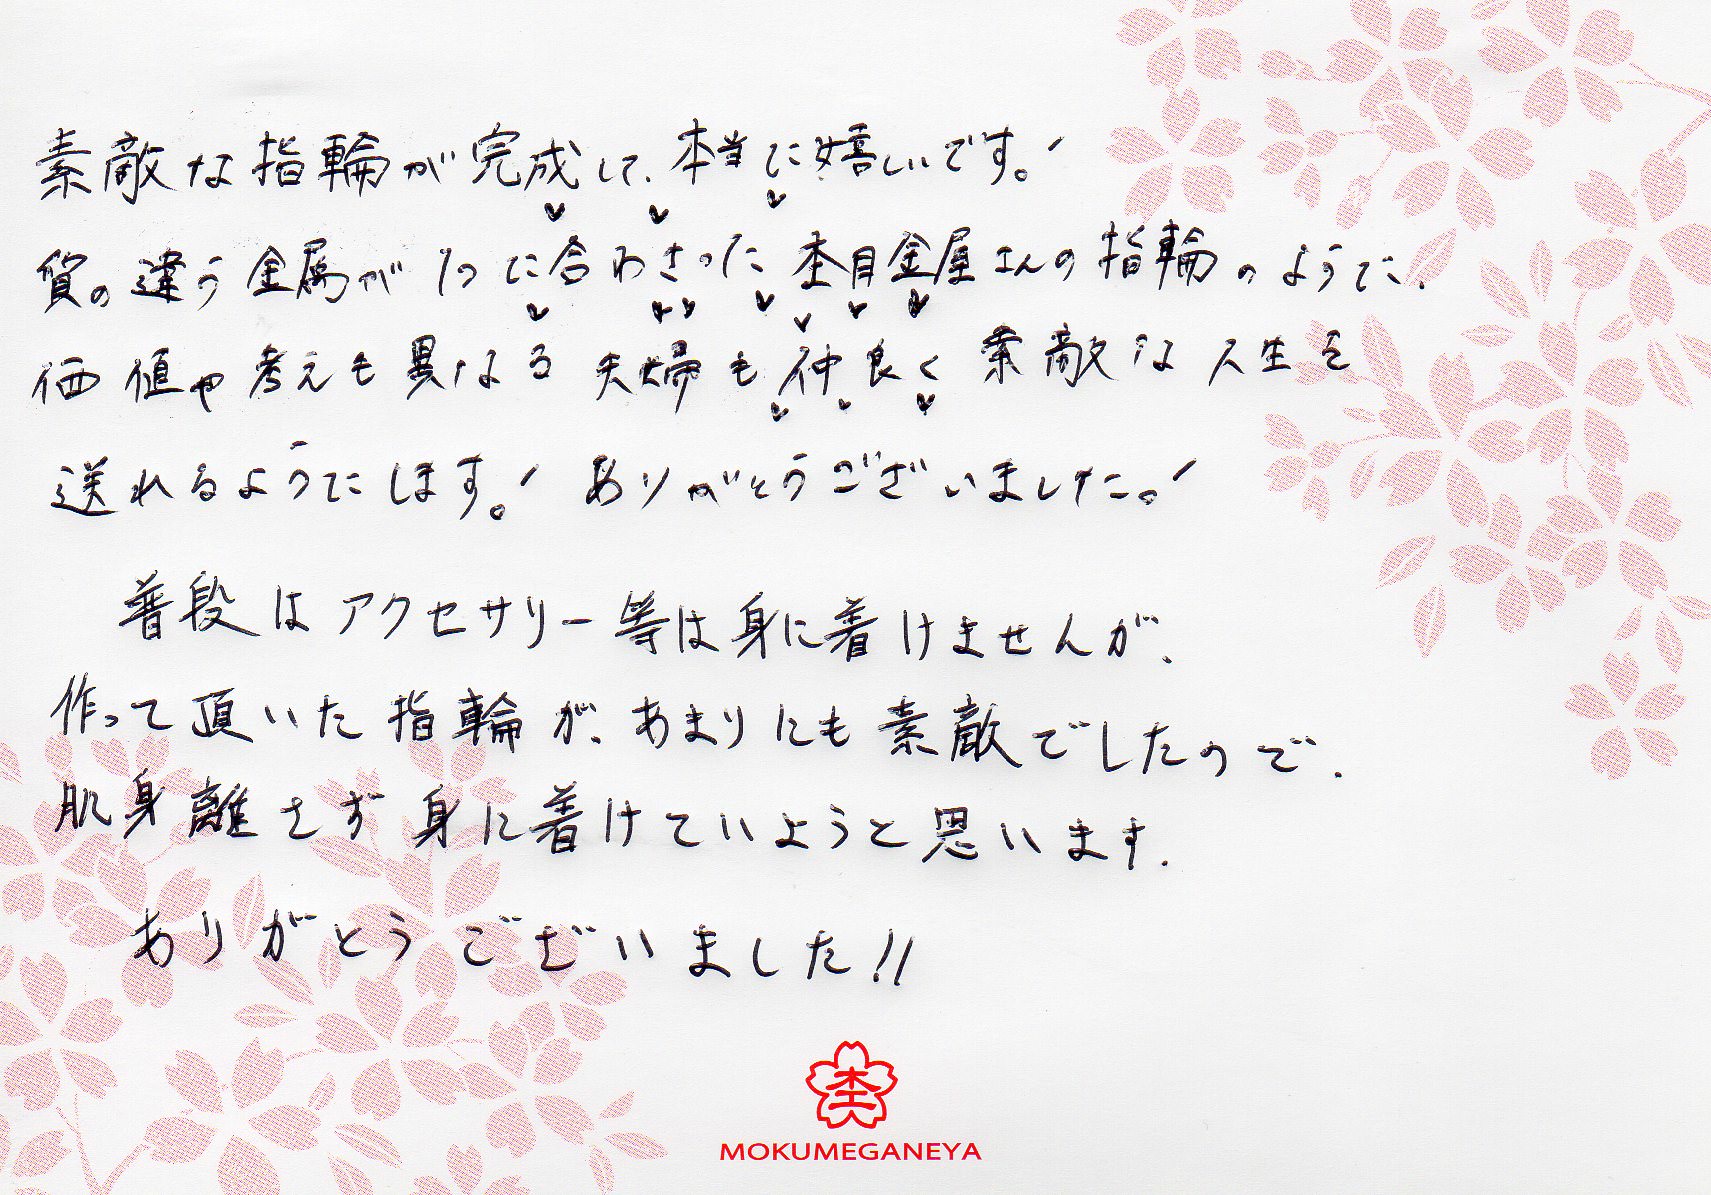 素敵な指輪が完成して、本当に嬉しいです。!
質の違う金属が1つに合わさった杢目金屋さんの指輪のように、
価値や考えも異なる夫婦も仲良く素敵な人生を
送れるようにします。! ありがとうございました。!
普段はアクセサリー等は身に着けませんが、
作って頂いた指輪が、あまりにも素敵でしたので、
肌身離さず身に着けていようと思います。
ありがとうございました!!
杢
MOKUMEGANEYA